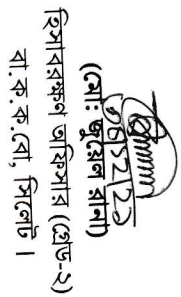 ০৬|১২|২১
(মোঃ জুয়েল রানা)
হিসাবরক্ষণ অফিসার (গ্রেড-২)
বা.ক.ক.বো, সিলেট ।